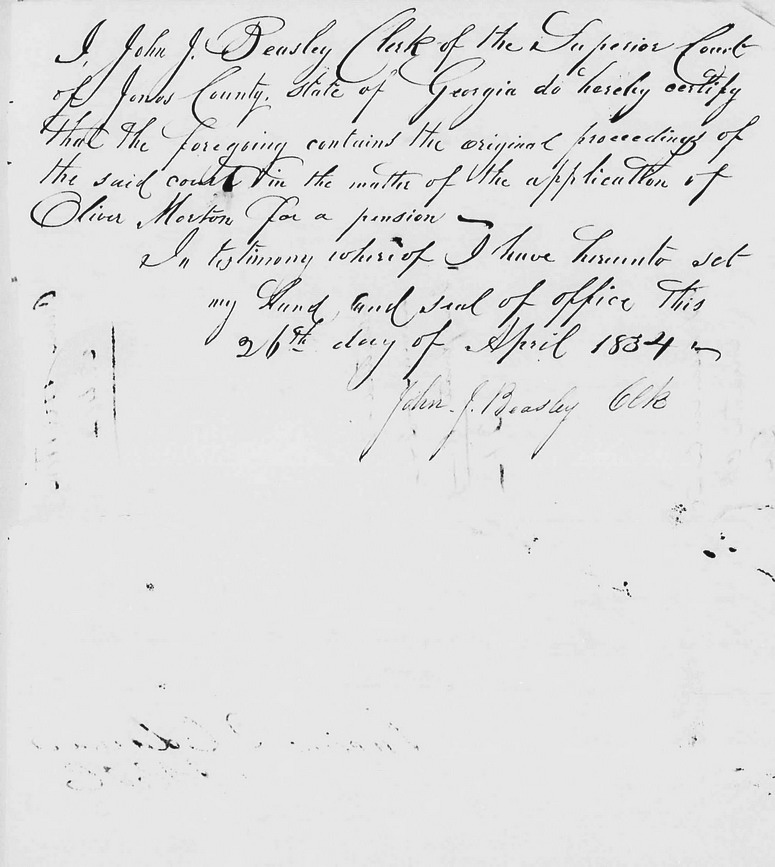 I, John J. Beasley Clerk of the Superior Court
of Jones County, State of Georgia do hereby certify
that the foregoing contains the original proceedings of
the said court in the matter of the application of
Oliver Morton for a pension
In testimony whereof I have hereunto set
my Hand and seal of office this
26th day of April 1834
John J. Beasley Clk